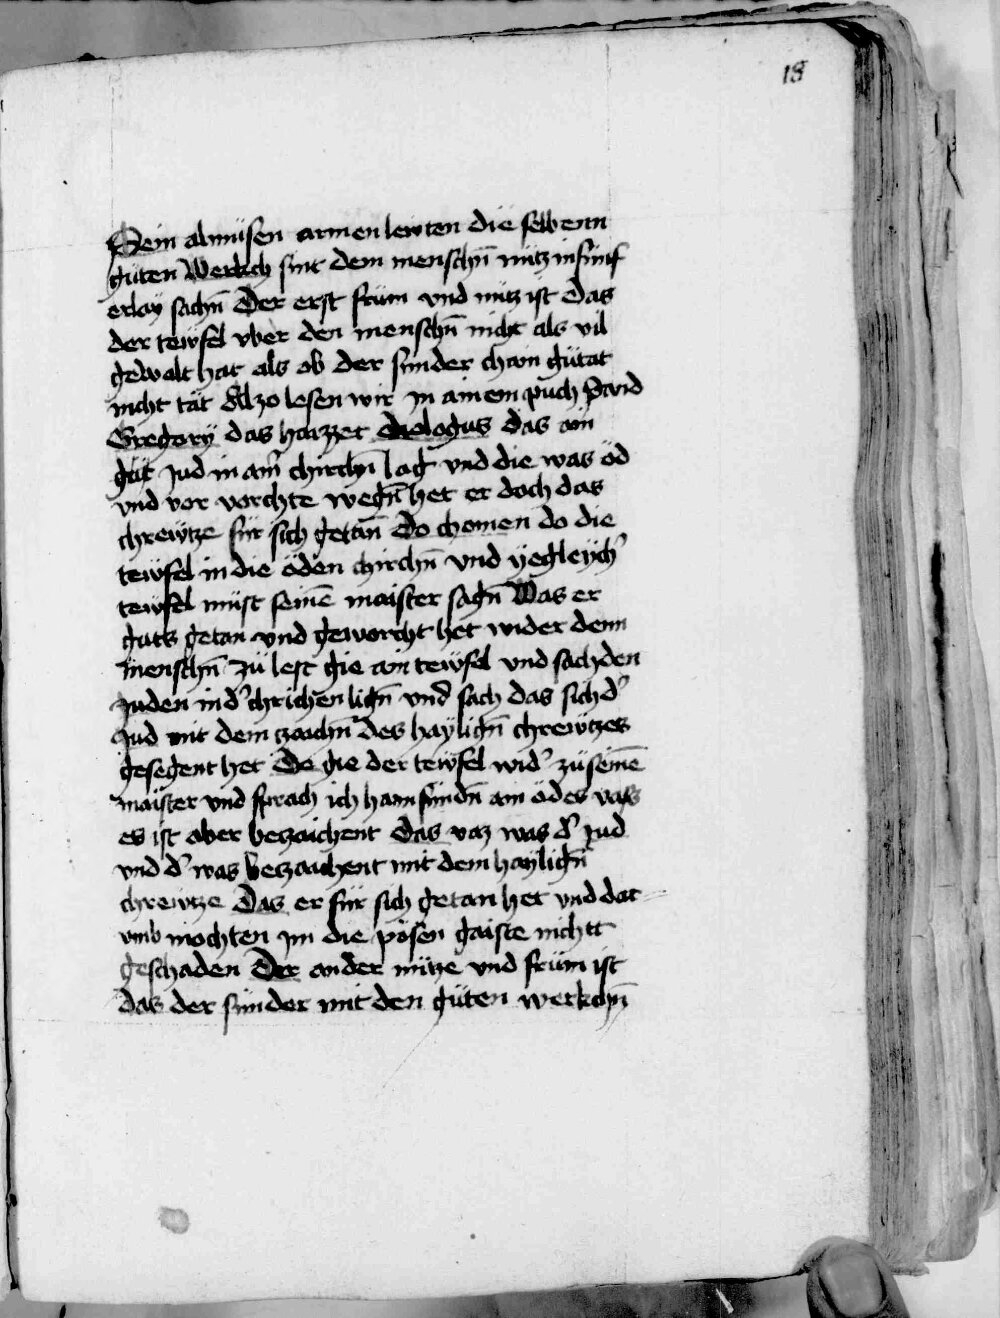 18
Sein almüsen armen lewten die selbenn
güten Werkch sint dem menschn̄ nütz in fünf
erlay sachn̄ Der erst früm vnd nütz ist Das
der tewfel vber den menschn̄ nicht als vil
gewalt hat als ob der sünder chain gütat
nicht tät Alzo lesen wir in ainem püch Sand
Gregorÿ das hayzzet dyalogus das ain
güt Jud in ainr̄ chirchn̄ lag vnd die was öd
vnd vor vorchte wegn̄ het er doch das
chrewtze für sich getan̄ Do chomen do die
tewfel in die öden chirchn̄ vnd yegleych̾
tewfel müst seinē maister sagn̄ Was er
guts getan vnd geworcht het wider denn
menschn̄ zü lest gie ain tewfel vnd sach den
Juden in d̾ chrichen lign̄ vnd sach das sich d̾
Jud mit dem zaichn̄ des haÿlign̄ chrewtzes
gesegent het Do gie der tewfel wid̾ zü seinē
maister vnd sprach ich han fündn̄ ain ödes vas
es ist aber betzaichent Das vaz was d̾ Jud
vnd d̾ was betzaichent mit dem haÿlign̄
chrewtze Das er für sich getan het vnd dar=
vmb mochten im die pösen gaiste nichtt
geschaden Der ander nütze vnd früm ist
das der sünder mit den güten werkchn̄